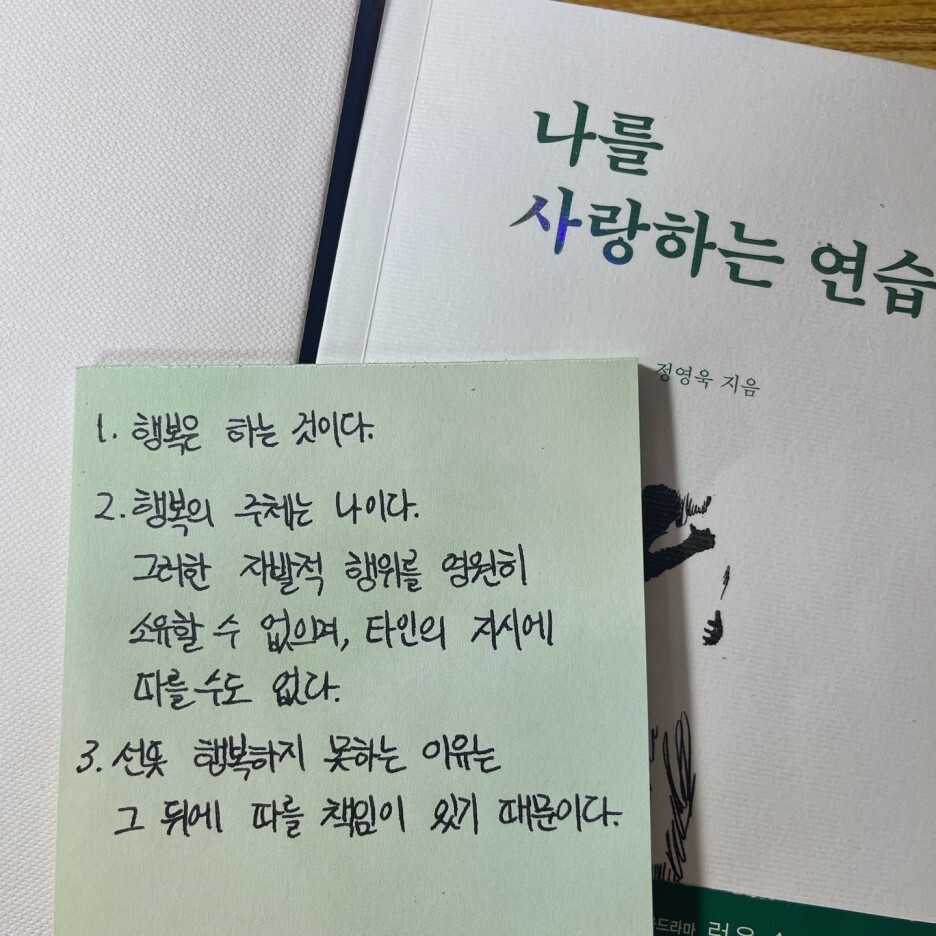 나를
사랑하는 연습
정영욱 지음
1. 행복은 하는 것이다.
2. 행복의 주체는 나이다.
그러한 자발적 행위를 영원히
소유할 수 없으며, 타인의 지시에
따를 수도 없다.
3. 선뜻 행복하지 못하는 이유는
그 뒤에 따를 책임이 있기 때문이다.